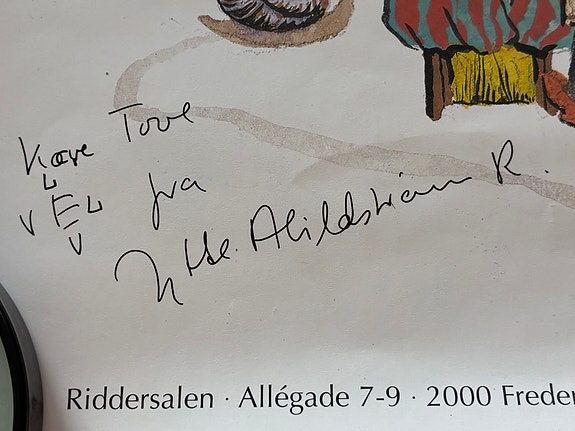 Kære Tove
fra
Jytte Abildstrøm R.
Riddersalen · Allégade 7-9 · 2000 Freder